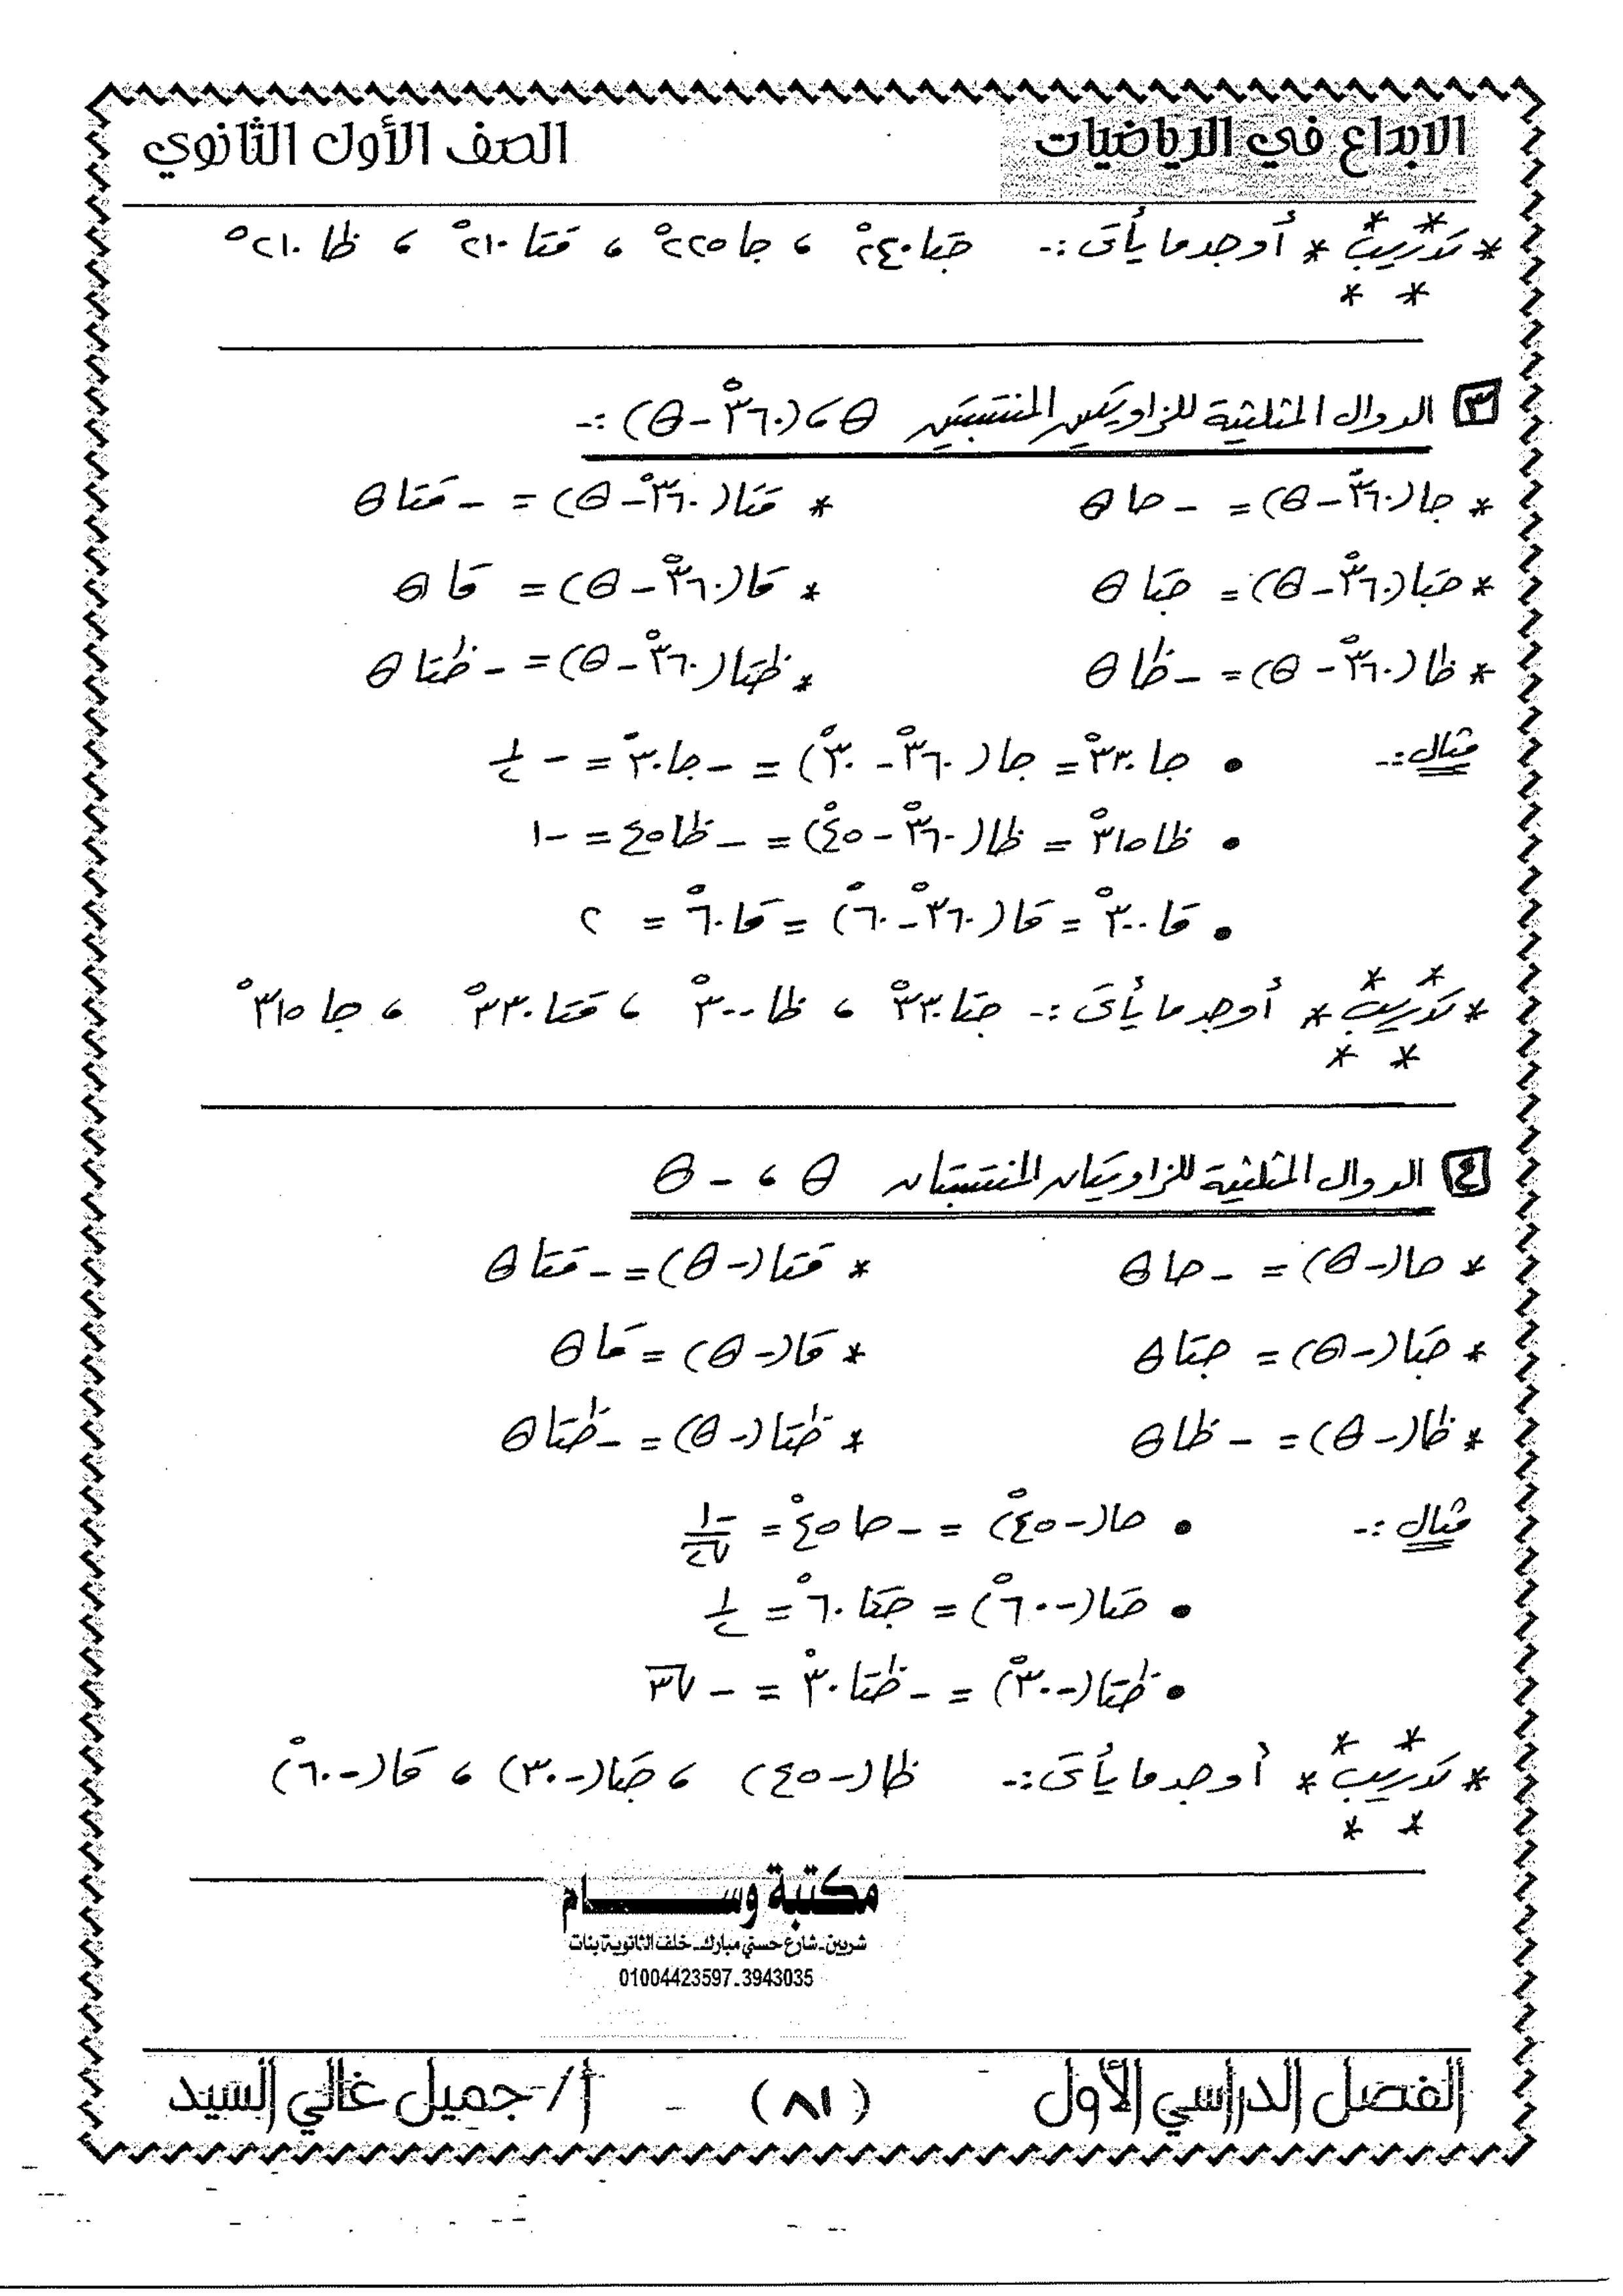 الابداع في الرياضيات
الصف الأول الثانوي
* تدريب * أوجد ما يأتى :- جتا ٢٤٠° ، جا ٢٢٥° ، قتا ٢١٠° ، ظا ٢١٠°
٣ الدوال المثلثية للزاويتين المنتسبتين θ ، (٣٦٠° - θ) :-
* جا (٣٦٠° - θ) = - جا θ * قتا (٣٦٠° - θ) = - قتا θ
* جتا (٣٦٠° - θ) = جتا θ * قا (٣٦٠° - θ) = قا θ
* ظا (٣٦٠° - θ) = - ظا θ * ظتا (٣٦٠° - θ) = - ظتا θ
مثال :- • جا ٣٣٠° = جا (٣٦٠° - ٣٠°) = - جا ٣٠° = - ١/٢
• ظا ٣١٥° = ظا (٣٦٠° - ٤٥°) = - ظا ٤٥ = -١
• قا ٣٠٠° = قا (٣٦٠° - ٦٠°) = قا ٦٠° = ٢
* تدريب * أوجد ما يأتى :- جتا ٣٣٠° ، ظا ٣٠٠° ، قتا ٣٣٠° ، جا ٣١٥°
٤ الدوال المثلثية للزاويتان المنتسبتان θ ، - θ
* حا (-θ) = - حا θ * قتا (-θ) = - قتا θ
* جتا (-θ) = جتا θ * قا (-θ) = قا θ
* ظا (-θ) = - ظا θ * ظتا (-θ) = - ظتا θ
مثال :- • حا (-٤٥°) = - حا ٤٥° = -١/√٢
• جتا (-٦٠°) = جتا ٦٠° = ١/٢
• ظتا (-٣٠°) = - ظتا ٣٠° = - √٣
* تدريب * أوجد ما يأتى :- ظا (-٤٥) ، جتا (-٣٠) ، قا (-٦٠°)
مكتبة وســـــام
شربين - شارع حسني مبارك - خلف الثانوية بنات
01004423597-3943035
الفصل الدراسي الأول
(٨١)
أ/ جميل غالي السيد